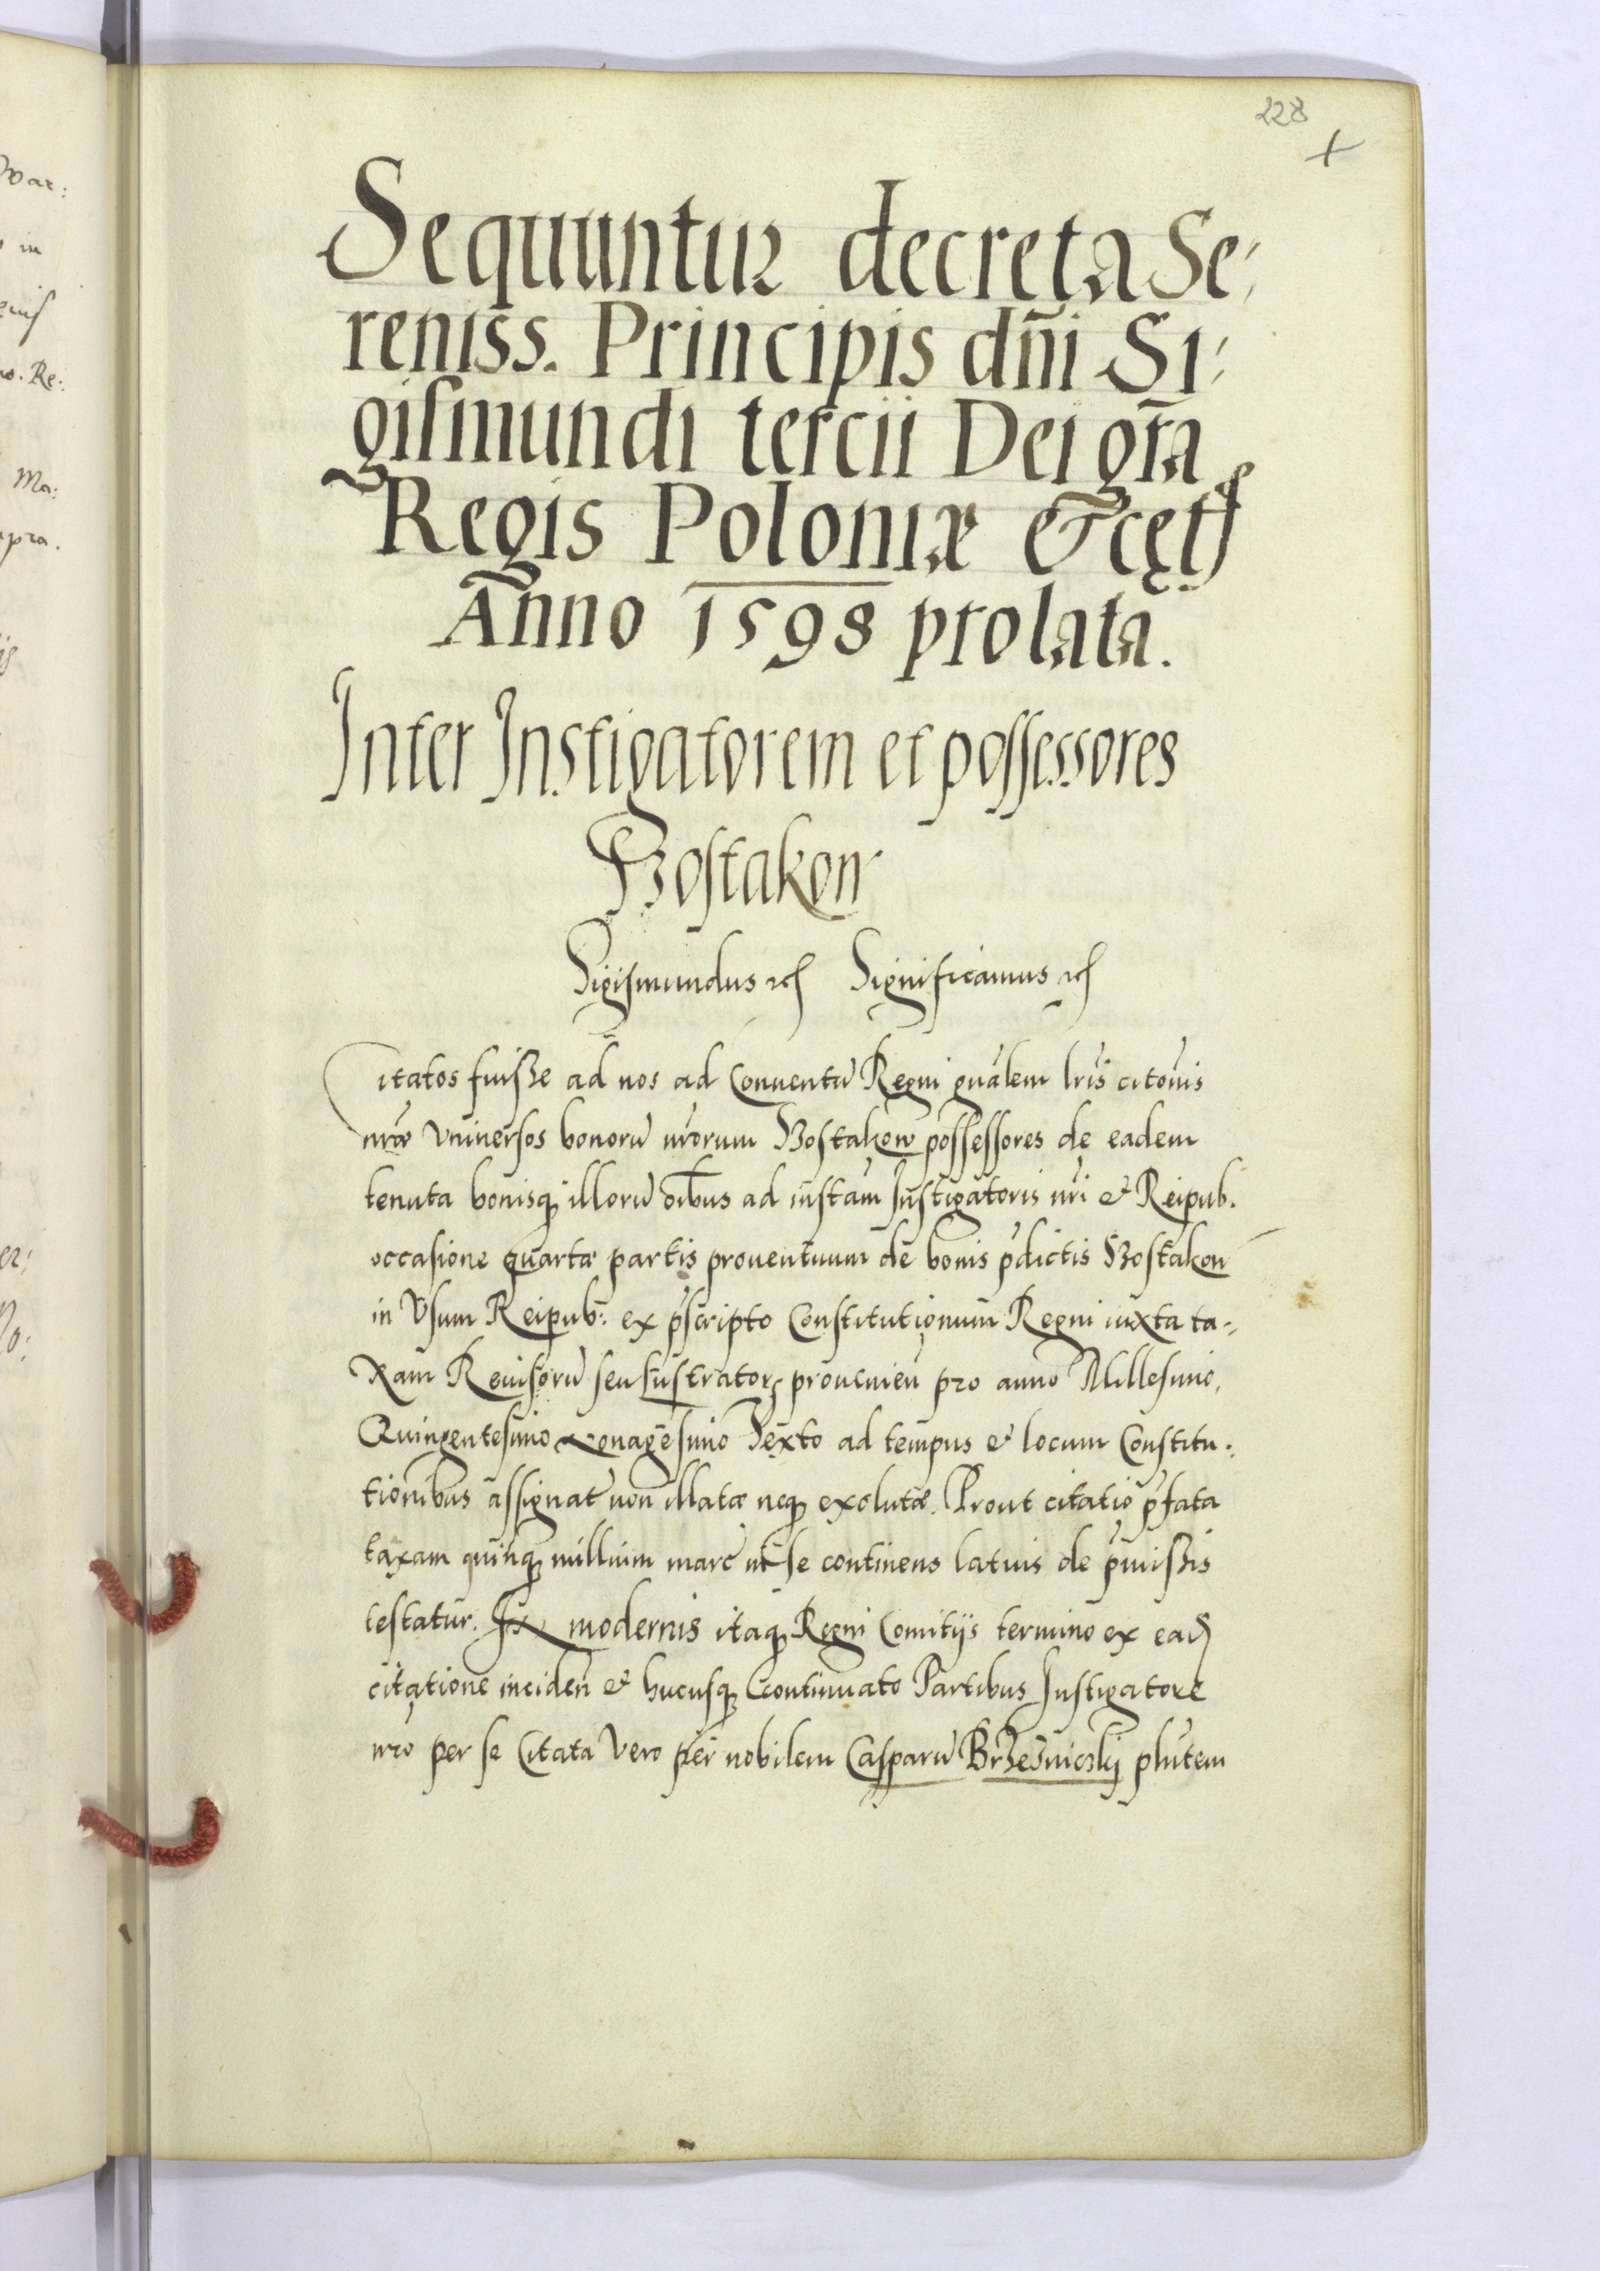 228
Sequuntur decreta Se-
reniss. Principis dñi Si-
gismundi tercii Dei gr̃a
Regis Poloniæ &cęt
Anno 1598 prolata.
Inter Instigatorem et possessores
Bostakow
Sigismundus etc Significamus etc
Citatos fuisse ad nos ad Conventũ Regni gnãlem lris citõnis
nrã Vniuersos bonorũ nrorum Bostakow possessores de eadem
tenuta bonisq illorũ oibus ad instam Instigatoris nri & Reipub.
occasione quartæ partis prouentuum de bonis pdictis Bostakow
in Vsum Reipub: ex pscripto Constitutionum Regni iuxta ta-
xam Reuisorũ seu lustrator prouenien pro anno Millesimo,
Quingentesimo nonagesimo Sexto ad tempus & locum Constitu-
tionibus assignat non illatæ neq exolutæ. Prout citatio pfata
taxam quinq millium marc in se continens latius de pmissis
testatur. In modernis itaq Regni Comitijs termino ex ead
citatione inciden & hucusq Continuato Partibus Instigatore
nro per se Citata Vero per nobilem Casparũ Brzeźniczkij plntem